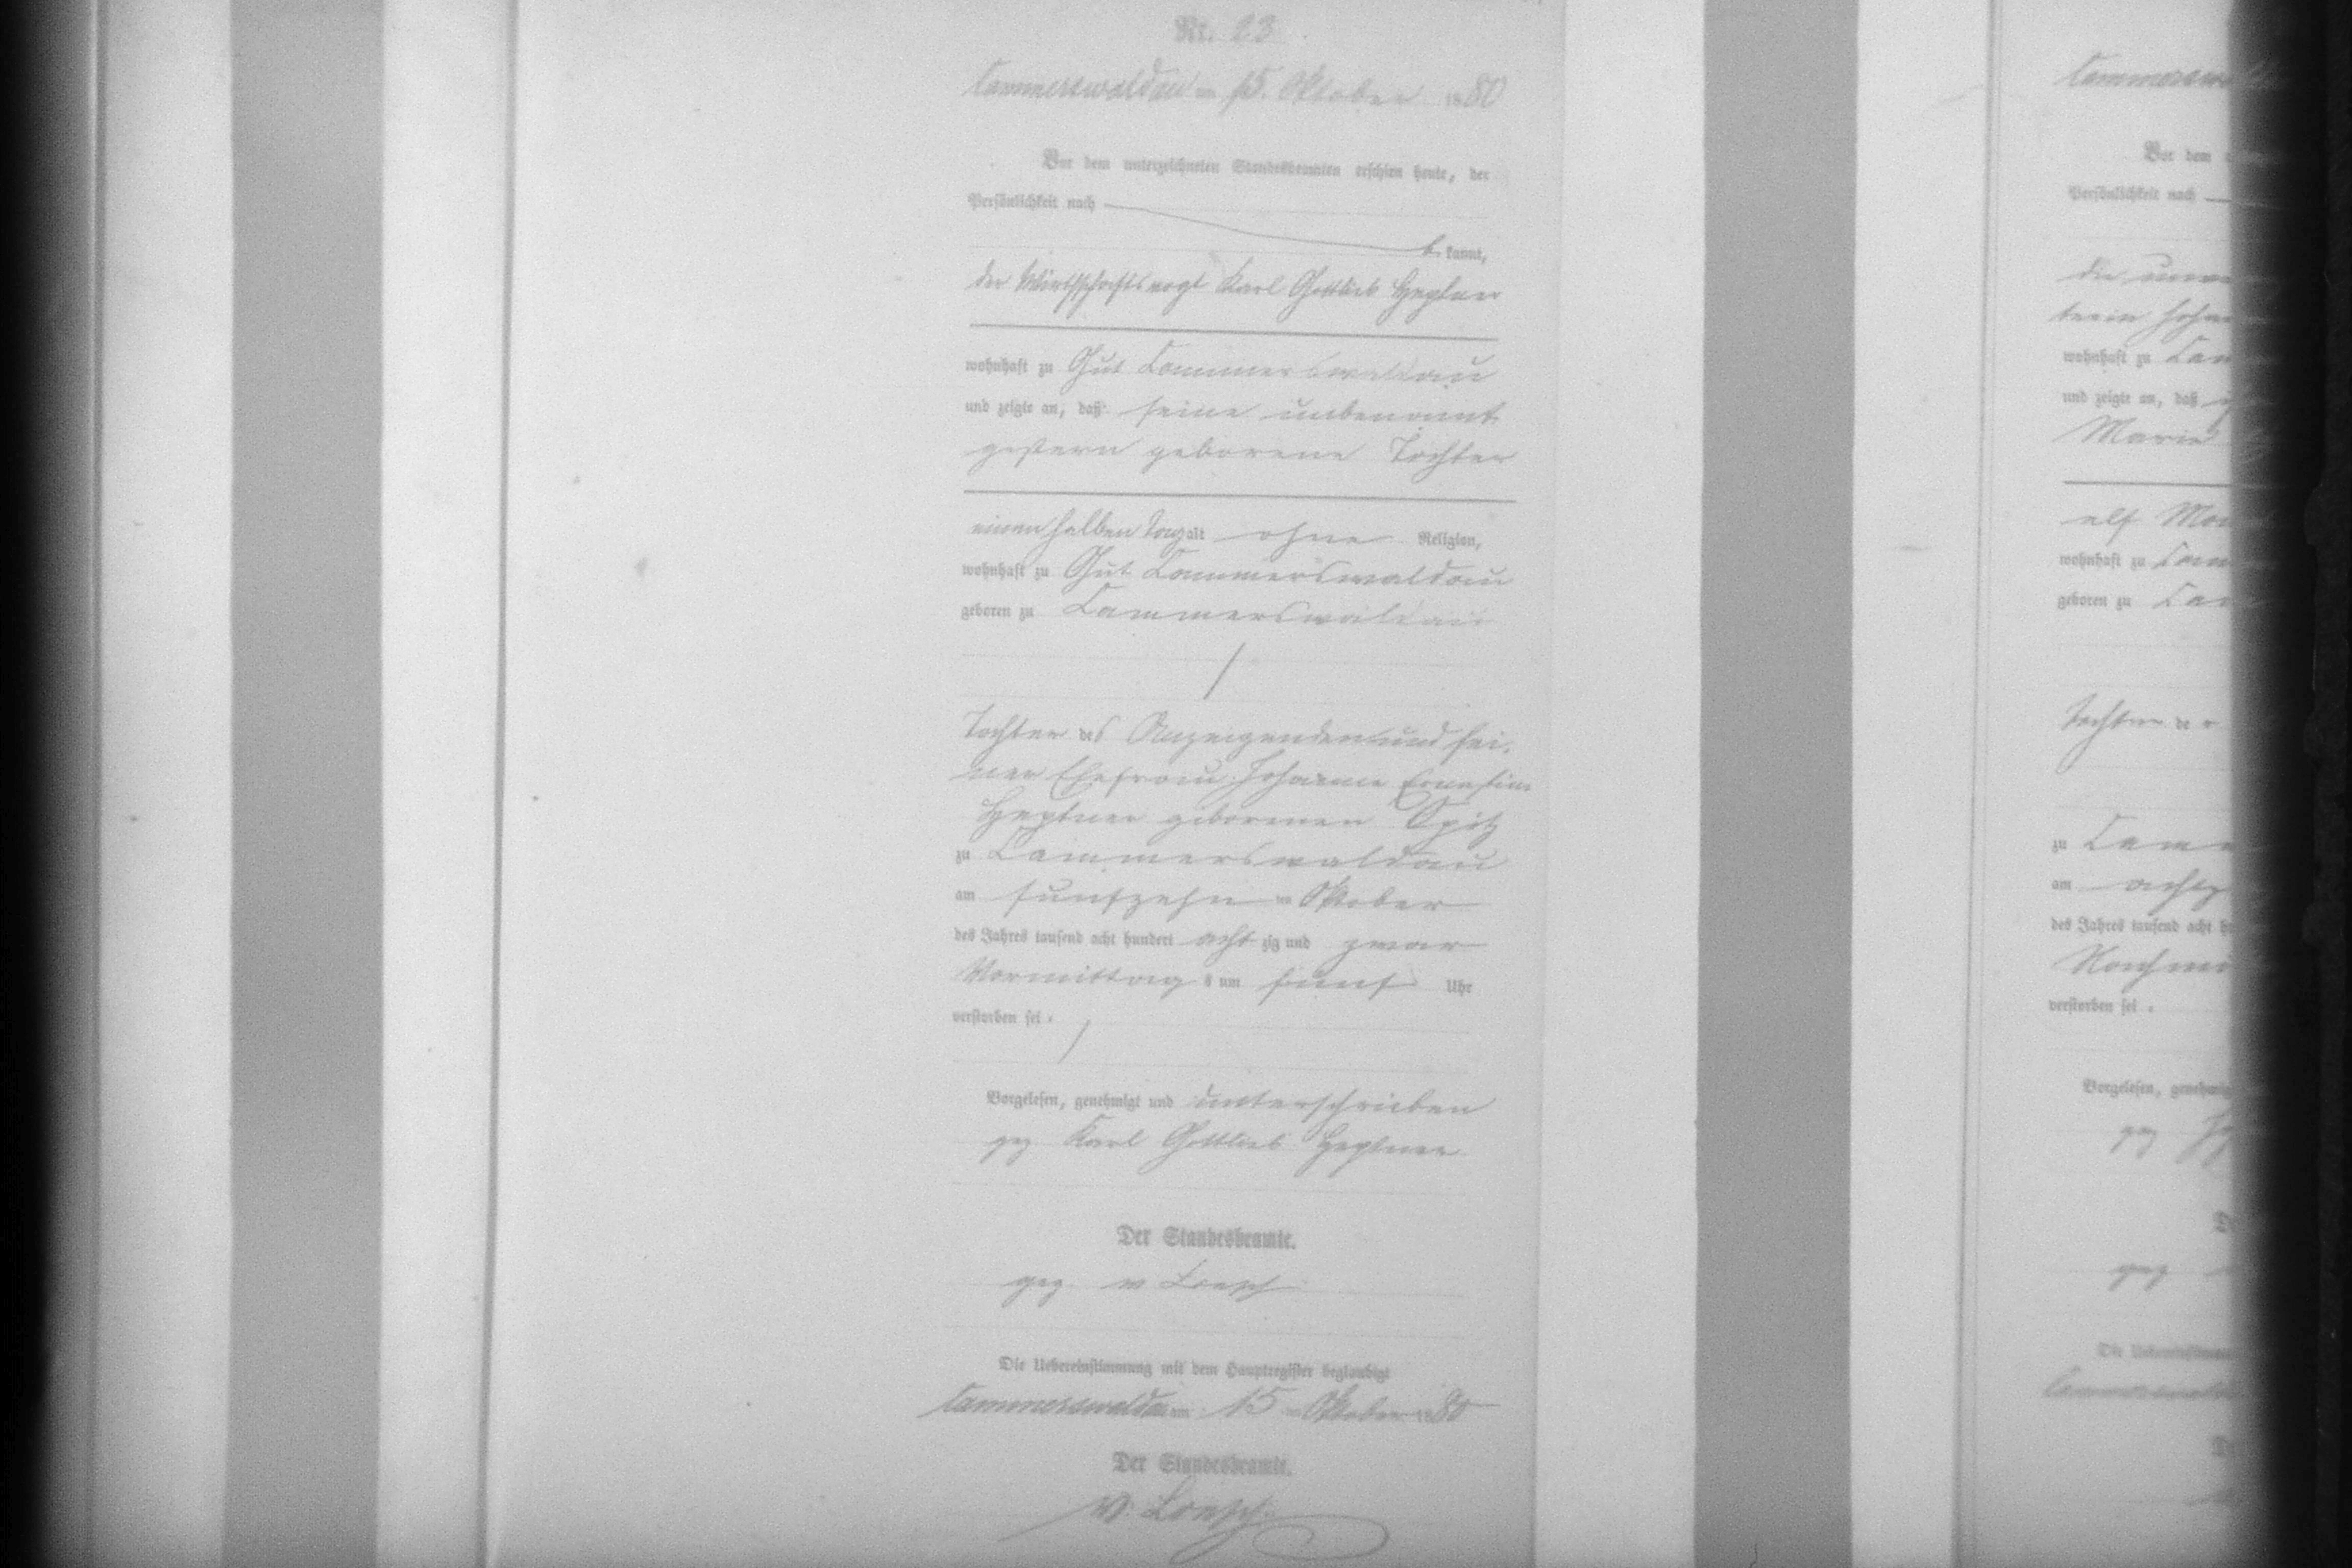 Nr. 23
Cammerswaldau am 15. Oktober 1880
Vor dem unterzeichneten Standesbeamten erschien heute, der
Persönlichkeit nach
be kannt,
der Wirthschaftsvogt Karl Gottlieb Heptner
wohnhaft zu Gut Cammerswaldau
und zeigte an, daß seine unbenannt
gestern geborene Tochter
einen halben Tag alt ohne Religion,
wohnhaft zu Gut Cammerswaldau
geboren zu Cammerswaldau
Tochter des Anzeigenden und sei-
ner Ehefrau Johanne Ernestine
Heptner geborenen Spitz
zu Cammerswaldau
am funfzehn ten Oktober
des Jahres tausend acht hundert acht zig und zwar
Vormittag s um fünf Uhr
verstorben sei.
Vorgelesen, genehmigt und unterschrieben
gez Karl Gottlieb Heptner
Der Standesbeamte.
gez. v Loesch
Die Uebereinstimmung mit dem Hauptregister beglaubigt
Cammerswaldau am 15 ten Oktober 1880
Der Standesbeamte.
v. Loesch
Vor dem
Persönlichkeit nach
die
wohnhaft zu
und zeigte an, daß
Marie
elf
wohnhaft zu
geboren zu
Tochter der
zu
am
des Jahres tausend acht
verstorben sei.
Vorgelesen,
gez
gez
Die